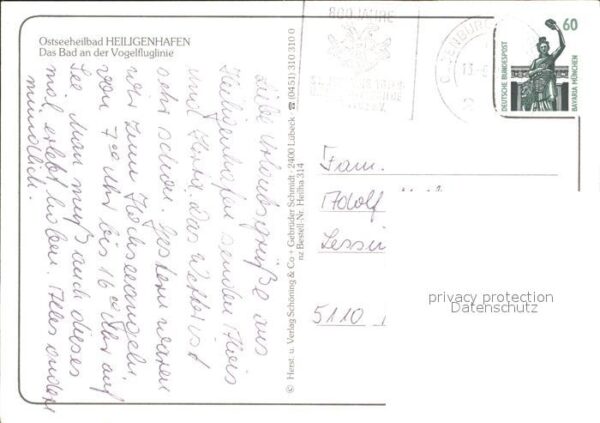 Ostseeheilbad HEILIGENHAFEN
Das Bad an der Vogelfluglinie
Liebe Urlaubsgrüße aus
Heiligenhafen senden Alois
und Das Wetter ist
sehr schön. Gestern waren
wir zum Hochseeangeln
von 7 00 Uhr bis 16 00 Uhr auf
See. Man muß auch dieses
mal erlebt haben. Alles andere
mündlich.
© Herst. u. Verlag Schöning & Co + Gebrüder Schmidt, 2400 Lübeck ☎ (0451) 310 310 0
nz Bestell-Nr. Heilha 314
800 JAHRE
60
DEUTSCHE BUNDESPOST
BAVARIA MÜNCHEN
Fam.
Adolf
Lessin
5110
privacy protection
Datenschutz